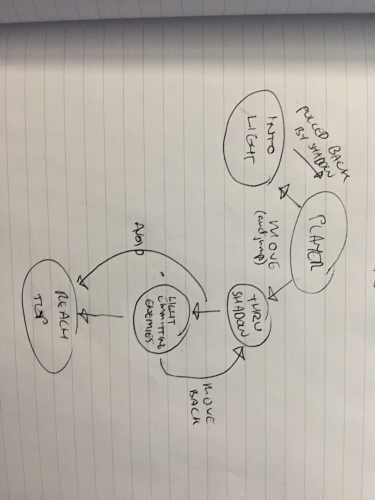 PULLED BACK
BY SHADOW
PLAYER
INTO
LIGHT
MOVE
(and jump)
THRU
SHADOW
LIGHT
EMITTING
ENEMIES
MOVE
BACK
AVOID
REACH
TOP